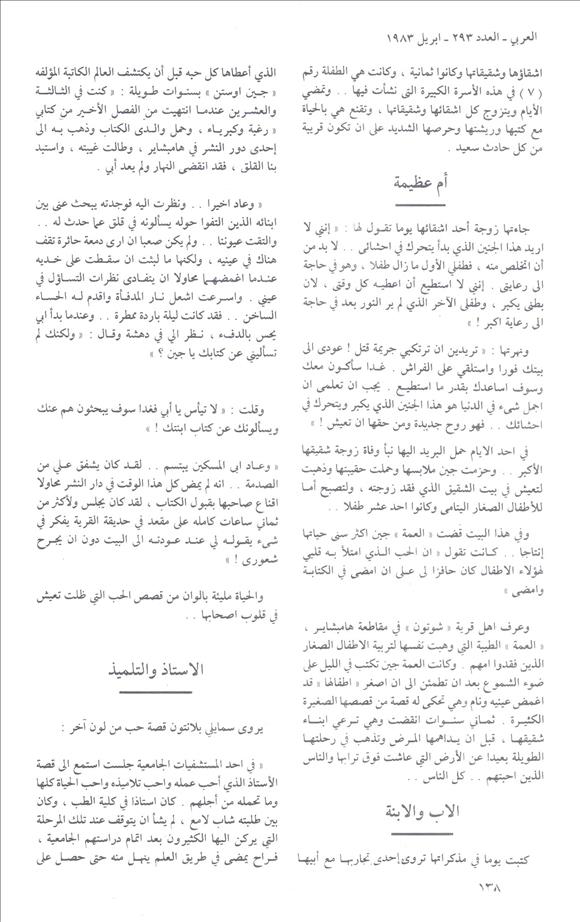 العربي - العدد ٢٩٣ - ابريل ١٩٨٣
اشقاؤها وشقيقاتها وكانوا ثمانية ، وكانت هي الطفلة رقم
( ٧ ) في هذه الأسرة الكبيرة التي نشأت فيها . . وتمضي
الأيام ويتزوج كل اشقائها وشقيقاتها ، وتقنع هي بالحياة
مع كتبها وريشتها وحرصها الشديد على ان تكون قريبة
من كل حادث سعيد .
أم عظيمة
جاءتها زوجة أحد اشقائها يوما تقول لها : « إنني لا
اريد هذا الجنين الذي بدأ يتحرك في احشائى . . لا بد من
أن اتخلص منه ، فطفلي الأول ما زال طفلا ، وهو في حاجة
الى رعايتى . إنني لا استطيع أن اعطيه كل وقتى ، لان
بطنى يكبر ، وطفلى الآخر الذي لم ير النور بعد في حاجة
الى رعاية اكبر ! »
ونهرتها : « تريدين ان ترتكبي جريمة قتل ! عودى الى
بيتك فورا واستلقي على الفراش . غدا سأكون معك
وسوف اساعدك بقدر ما استطيع . يجب ان تعلمى ان
اجمل شىء في الدنيا هو هذا الجنين الذي يكبر ويتحرك في
احشائك . . فهو روح جديدة ومن حقها ان تعيش ! »
في احد الايام حمل البريد اليها نبأ وفاة زوجة شقيقها
الأكبر . . وحزمت جين ملابسها وحملت حقيبتها وذهبت
لتعيش في بيت الشقيق الذي فقد زوجته ، ولتصبح أمـا
للأطفال الصغار اليتامى وكانوا احد عشر طفلا . .
وفي هذا البيت قضت « العمة » جين اكثر سنى حياتها
إنتاجا . . كـانت تقول « ان الحب الـذي امتلأ بـه قلبي
لهؤلاء الاطفال كان حافزا لى عـلى ان امضى في الكتابـة
وامضى »
وعرف اهل قرية « شوتون » في مقاطعة هامبشايـر ،
« العمة » الطيبة التي وهبت نفسها لتربية الاطفال الصغار
الذين فقدوا امهم . وكانت العمة جين تكتب في الليل على
ضوء الشموع بعد ان تطمئن الى ان اصغر « اطفالها » قد
اغمض عينيه ونام وهي تحكى له قصة من قصصها الصغيرة
الكثيرة . ثمـاني سنـوات انقضت وهـي تـرعى ابنـاء
شقيقهـا ، قبل ان يـداهمها المـرض وتذهب في رحلتهـا
الطويلة بعيدا عن الأرض التي عاشت فوق ترابها والناس
الذين احبتهم . . كل الناس . .
الاب والابنة
كتبت يوما في مذكراتها تروى إحدى تجاربها مع أبيها
الذي أعطاها كل حبه قبل أن يكتشف العالم الكاتبة المؤلفه
« جـين اوستن » بسنوات طويلة : « كنت في الثـالثـة
والعشرين عندما انتهيت من الفصل الأخير من كتابي
« رغبة وكبريـاء » وحمل والـدى الكتاب وذهب بـه الى
إحدى دور النشر في هامبشاير ، وطالت غيبته ، واستبد
بنا القلق ، فقد انقضى النهار ولم يعد أبي .
« وعاد اخيرا . . ونظرت اليه فوجدته يبحث عنى بين
ابنائه الذين التفوا حوله يسألونه في قلق عما حدث له . .
والتقت عيوننا . . ولم يكن صعبا ان ارى دمعة حائرة تقف
هناك في عينيه ، ولكنها ما لبثت ان سقطت على خديه
عندما اغمضهـما محاولا ان يتفادى نظرات التساؤل في
عيني . واسـرعت اشعل نـار المدفـأة واقدم لـه الحساء
الساخن . . فقد كانت ليلة باردة ممطرة . . وعندما بدأ ابي
يحس بالدفء ، نظر الي في دهشة وقـال : « ولكنك لم
تسأليني عن كتابك يا جين ؟ »
وقلت : « لا تيأس يا أبي فغدا سوف يبحثون هم عنك
ويسألونك عن كتاب ابنتك ! »
« وعـاد ابى المسكين يبتسم . . لقـد كان يشفق عـلي من
الصدمة . . انه لم يمض كل هذا الوقت في دار النشر محاولا
اقناع صاحبها بقبول الكتاب ، لقد كان يجلس ولأكثر من
ثماني ساعات كامله على مقعد في حديقة القرية يفكر في
شىء يقولـه لي عنـد عـودتـه الى البيت دون ان يجـرح
شعورى ! »
والحياة مليئة بالوان من قصص الحب التي ظلت تعيش
في قلوب اصحابها . .
الاستاذ والتلميذ
يروى سمايلي بلانتون قصة حب من لون آخر :
« في احد المستشفيات الجامعية جلست استمع الى قصة
الأستاذ الذي أحب عمله واحب تلاميذه واحب الحياة كلها
وما تحمله من أجلهم . كان استاذا في كلية الطب ، وكان
بين طلبته شاب لامع ، لم يشأ ان يتوقف عند تلك المرحلة
التي يركن اليها الكثيرون بعد اتمام دراستهم الجامعية ،
فـراح يمضى في طريق العلم ينهـل منه حتى حصـل على
١٣٨